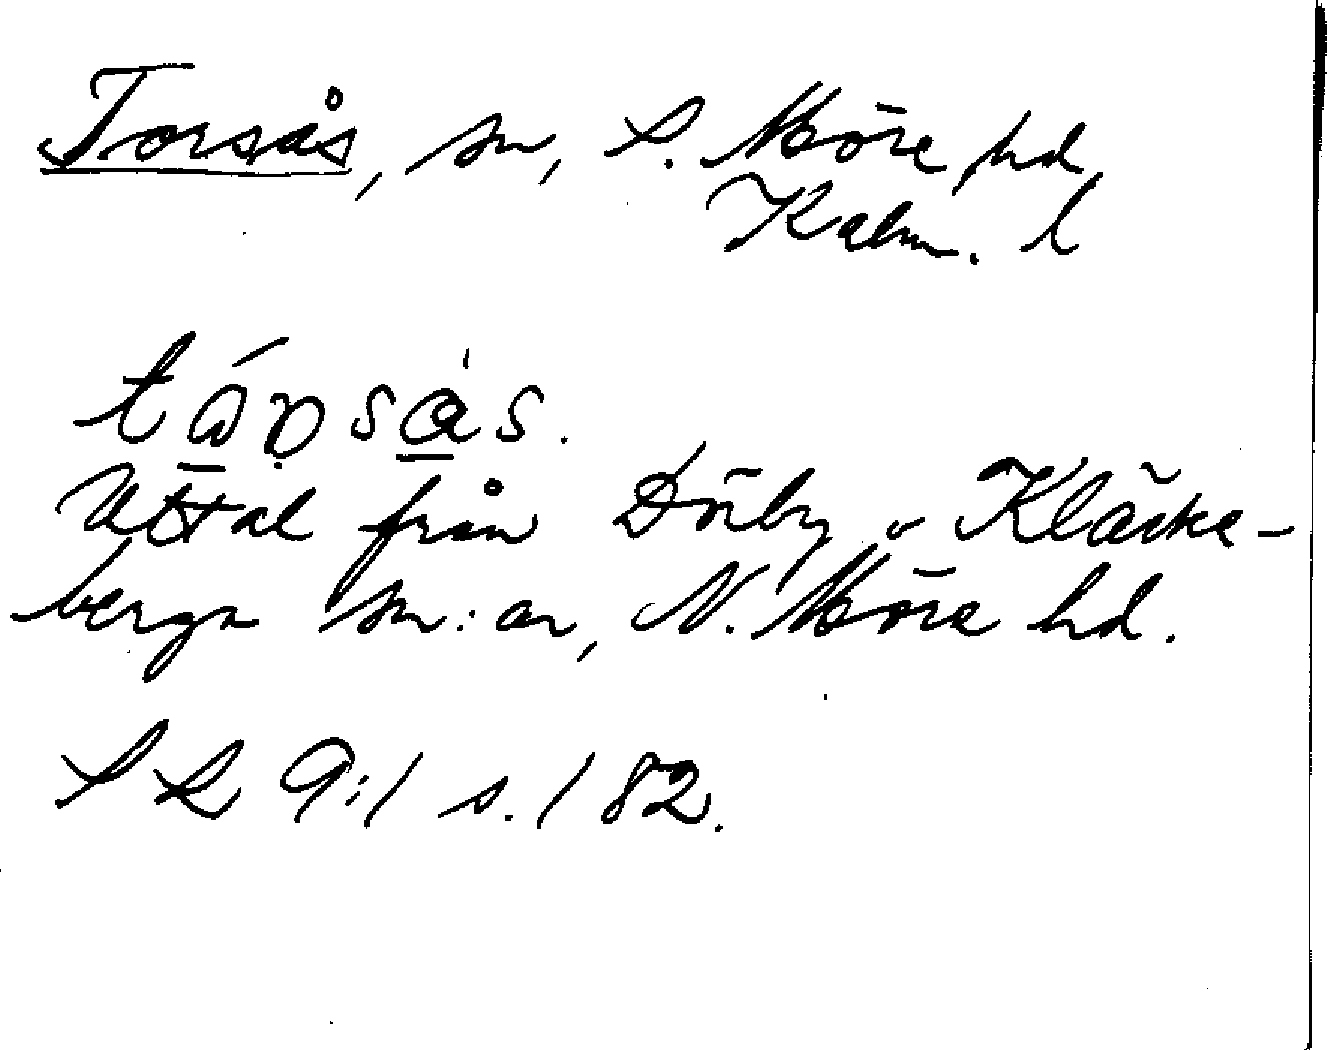 Torsås, sn, S. Möre hd
Kalm. l
tá̱ɒ̣så̱s.
Uttal från Dörby o Kläcke-
berga sn:ar, N. Möre hd.
SL 9:1 s. 182.